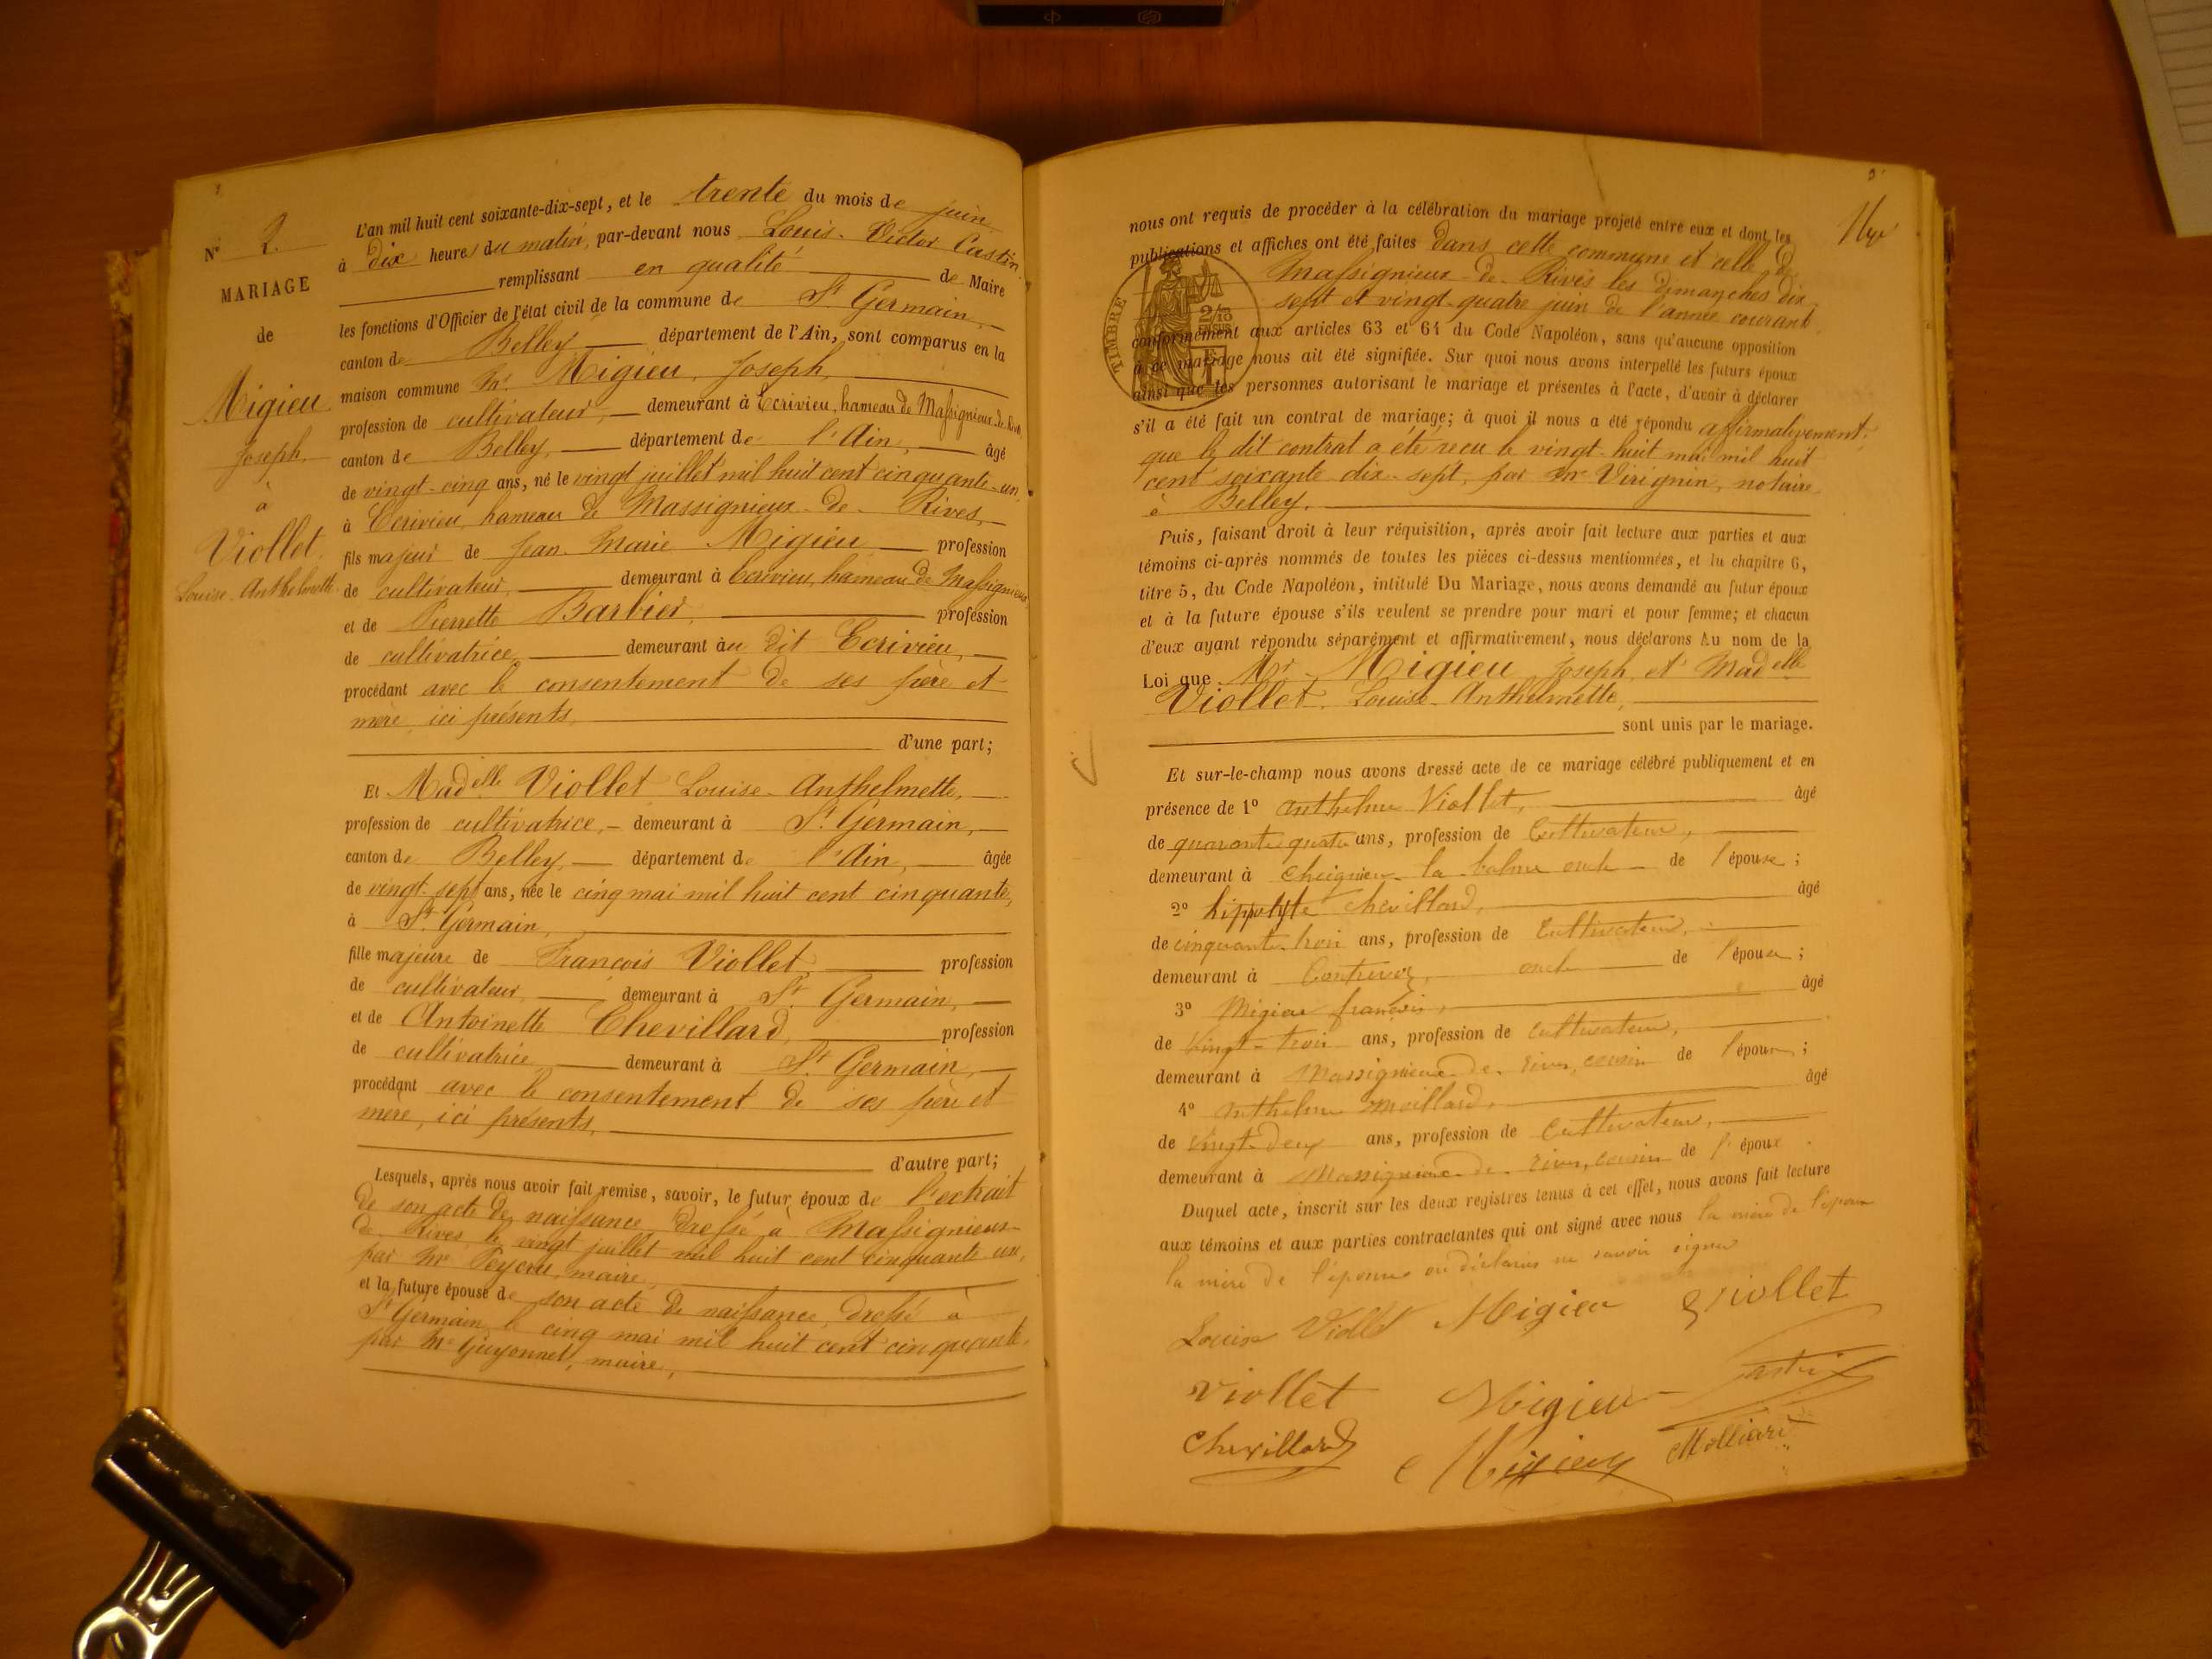 N° 2.
MARIAGE
de
Migieu
Joseph
à
Viollet
Louise-Anthelmette
L'an mil huit cent soixante-dix-sept, et le trente du mois de juin
à dix heures du matin, par-devant nous Louis-Victor Castin
remplissant en qualité de Maire
les fonctions d'Officier de l'état civil de la commune de St Germain,
canton de Belley département de l'Ain, sont comparus en la
maison commune Mr. Migieu, Joseph,
profession de cultivateur, demeurant à Ecrivieu, hameau de Massignieux de Rives
canton de Belley, département de l'Ain, âgé
de vingt-cinq ans, né le vingt juillet mil huit cent cinquante-un,
à Ecrivieu, hameau de Massignieux-de-Rives,
fils majeur de Jean-Marie Migieu profession
de cultivateur, demeurant à Ecrivieu, hameau de Massignieux
et de Pierrette Barbier, profession
de cultivatrice, demeurant au dit Ecrivieu,
procédant avec le consentement de ses père et
mère, ici présents,
d'une part;
Et Madelle Viollet Louise-Anthelmette,
profession de cultivatrice, demeurant à St Germain,
canton de Belley, département de l'Ain, âgée
de vingt-sept ans, née le cinq mai mil huit cent cinquante,
à St Germain,
fille majeure de François Viollet profession
de cultivateur, demeurant à St Germain,
et de Antoinette Chevillard, profession
de cultivatrice demeurant à St Germain,
procédant avec le consentement de ses père et
mère, ici présents,
d'autre part;
Lesquels, après nous avoir fait remise, savoir, le futur époux de l'extrait
de son acte de naissance, dressé à Massignieux-
de Rives, le vingt juillet mil huit cent cinquante un,
par Mr Peycru, maire,
et la future épouse de son acte de naissance, dressé à
St Germain, le cinq mai mil huit cent cinquante,
par Mr Guyonnet, maire,
nous ont requis de procéder à la célébration du mariage projeté entre eux et dont les
publications et affiches ont été faites dans cette commune et celle de
Massignieux-de-Rives les dimanches dix-
sept et vingt-quatre juin de l'année courant
TIMBRE
2/10 EN SUS
conformément aux articles 63 et 64 du Code Napoléon, sans qu'aucune opposition
à ce mariage nous ait été signifiée. Sur quoi nous avons interpellé les futurs époux
ainsi que les personnes autorisant le mariage et présentes à l'acte, d'avoir à déclarer
s'il a été fait un contrat de mariage; à quoi il nous a été répondu affirmativement,
que le dit contrat a été reçu le vingt-huit mai mil huit
cent soixante dix-sept, par Mr Virignin, notaire
à Belley.
Puis, faisant droit à leur réquisition, après avoir fait lecture aux parties et aux
témoins ci-après nommés de toutes les pièces ci-dessus mentionnées, et lu chapitre 6,
titre 5, du Code Napoléon, intitulé Du Mariage, nous avons demandé au futur époux
et à la future épouse s'ils veulent se prendre pour mari et pour femme; et chacun
d'eux ayant répondu séparément et affirmativement, nous déclarons Au nom de la
Loi que Mr. Migieu Joseph et Madelle
Viollet Louise-Anthelmette,
sont unis par le mariage.
Et sur-le-champ nous avons dressé acte de ce mariage célébré publiquement et en
présence de 1° anthelme Viollet, âgé
de quarante quatre ans, profession de Cultivateur,
demeurant à la balme oncle de l'épouse;
2° hippolyte chevillard, âgé
de cinquante-trois ans, profession de Cultivateur,
demeurant à Contrevoz, oncle de l'épouse;
3° Migieu françois, âgé
de vingt-trois ans, profession de Cultivateur,
demeurant à Massignieux de rives, cousin de l'époux;
4° anthelme moillard, âgé
de vingt-deux ans, profession de Cultivateur,
demeurant à Massignieux de rives, cousin de l'époux
Duquel acte, inscrit sur les deux registres tenus à cet effet, nous avons fait lecture
aux témoins et aux parties contractantes qui ont signé avec nous la mère de l'époux
la mère de l'épouse ont déclaré ne savoir signer
Louise Viollet Migieu Viollet
Viollet Migieu Castin
Chevillard Migieu Molliard